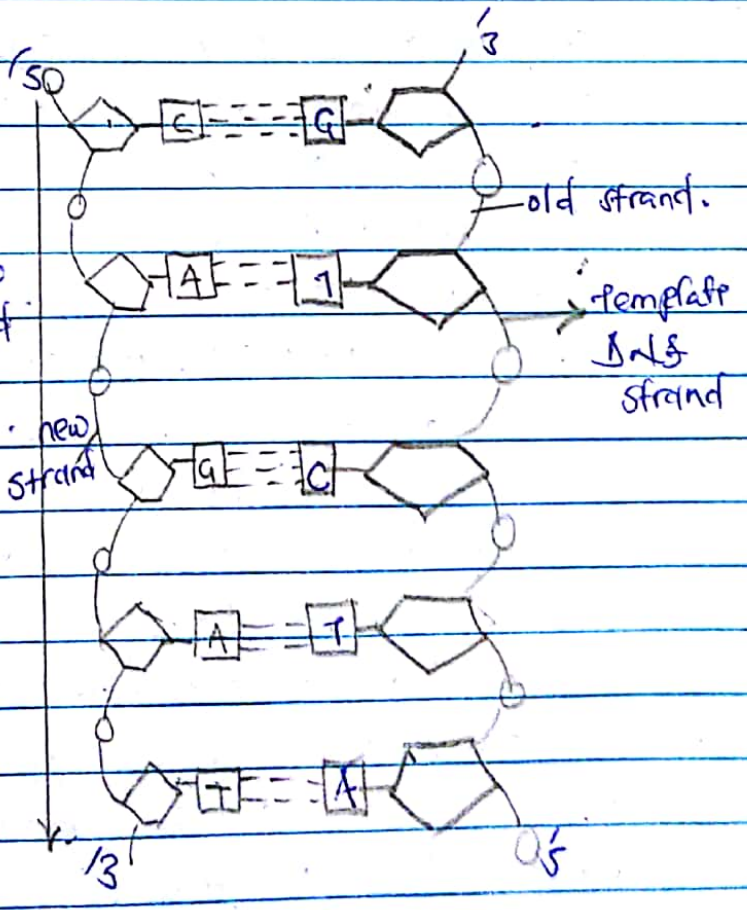 '3
'5
C G
old strand.
A T
template
DNA
strand
new
strand
G C
A T
T A
'3
'5